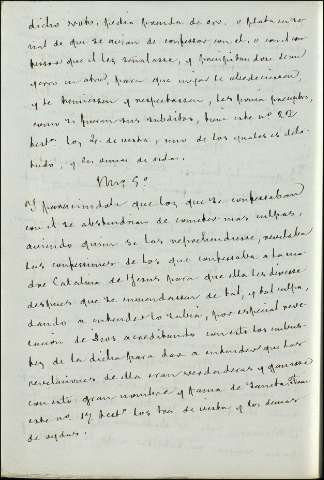 dicho voto, pedia prenda de oro, o plata en se
ñal de que se avian de confessar con el, o con la
persona que el les señalasse, y
para que mejor le obedeciessen,
y le temiessen y respectassen, les ponia preceptos,
como si fueran sus subditos, tiene este nº 22
testº los 2 de vista, uno de los quales es
y los demas de oidas.
Nº 5º
Y pareciendole que los que se confessaban
con el se abstendrian de cometer mas culpas,
aviendo quien se las reprehendiesse, revelaba
las confessiones de los que confessaba a la ma
dre Catalina de Jesus para que ella les dixesse
despues que se enmendassen de tal, y tal culpa,
dando a entender lo sabia, por especial reve
lacion de Dios acreditando con esto los embus
tes de la dicha para dar a entender que las
revelaciones de ella eran verdaderas y ganasse
con esto gran nombre y fama de Santa. Tiene
este nº 17 testº los tres de vista, y los demas
de oydas.